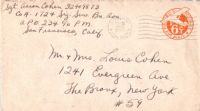 Sgt. Aaron Cohen 32449813
Co. A - 1124
A.P.O. 234 % P.M.
San Francisco, Calif.
6¢
Mr & Mrs. Louis Cohen
1241 Evergreen Ave
The Bronx, New York
#59